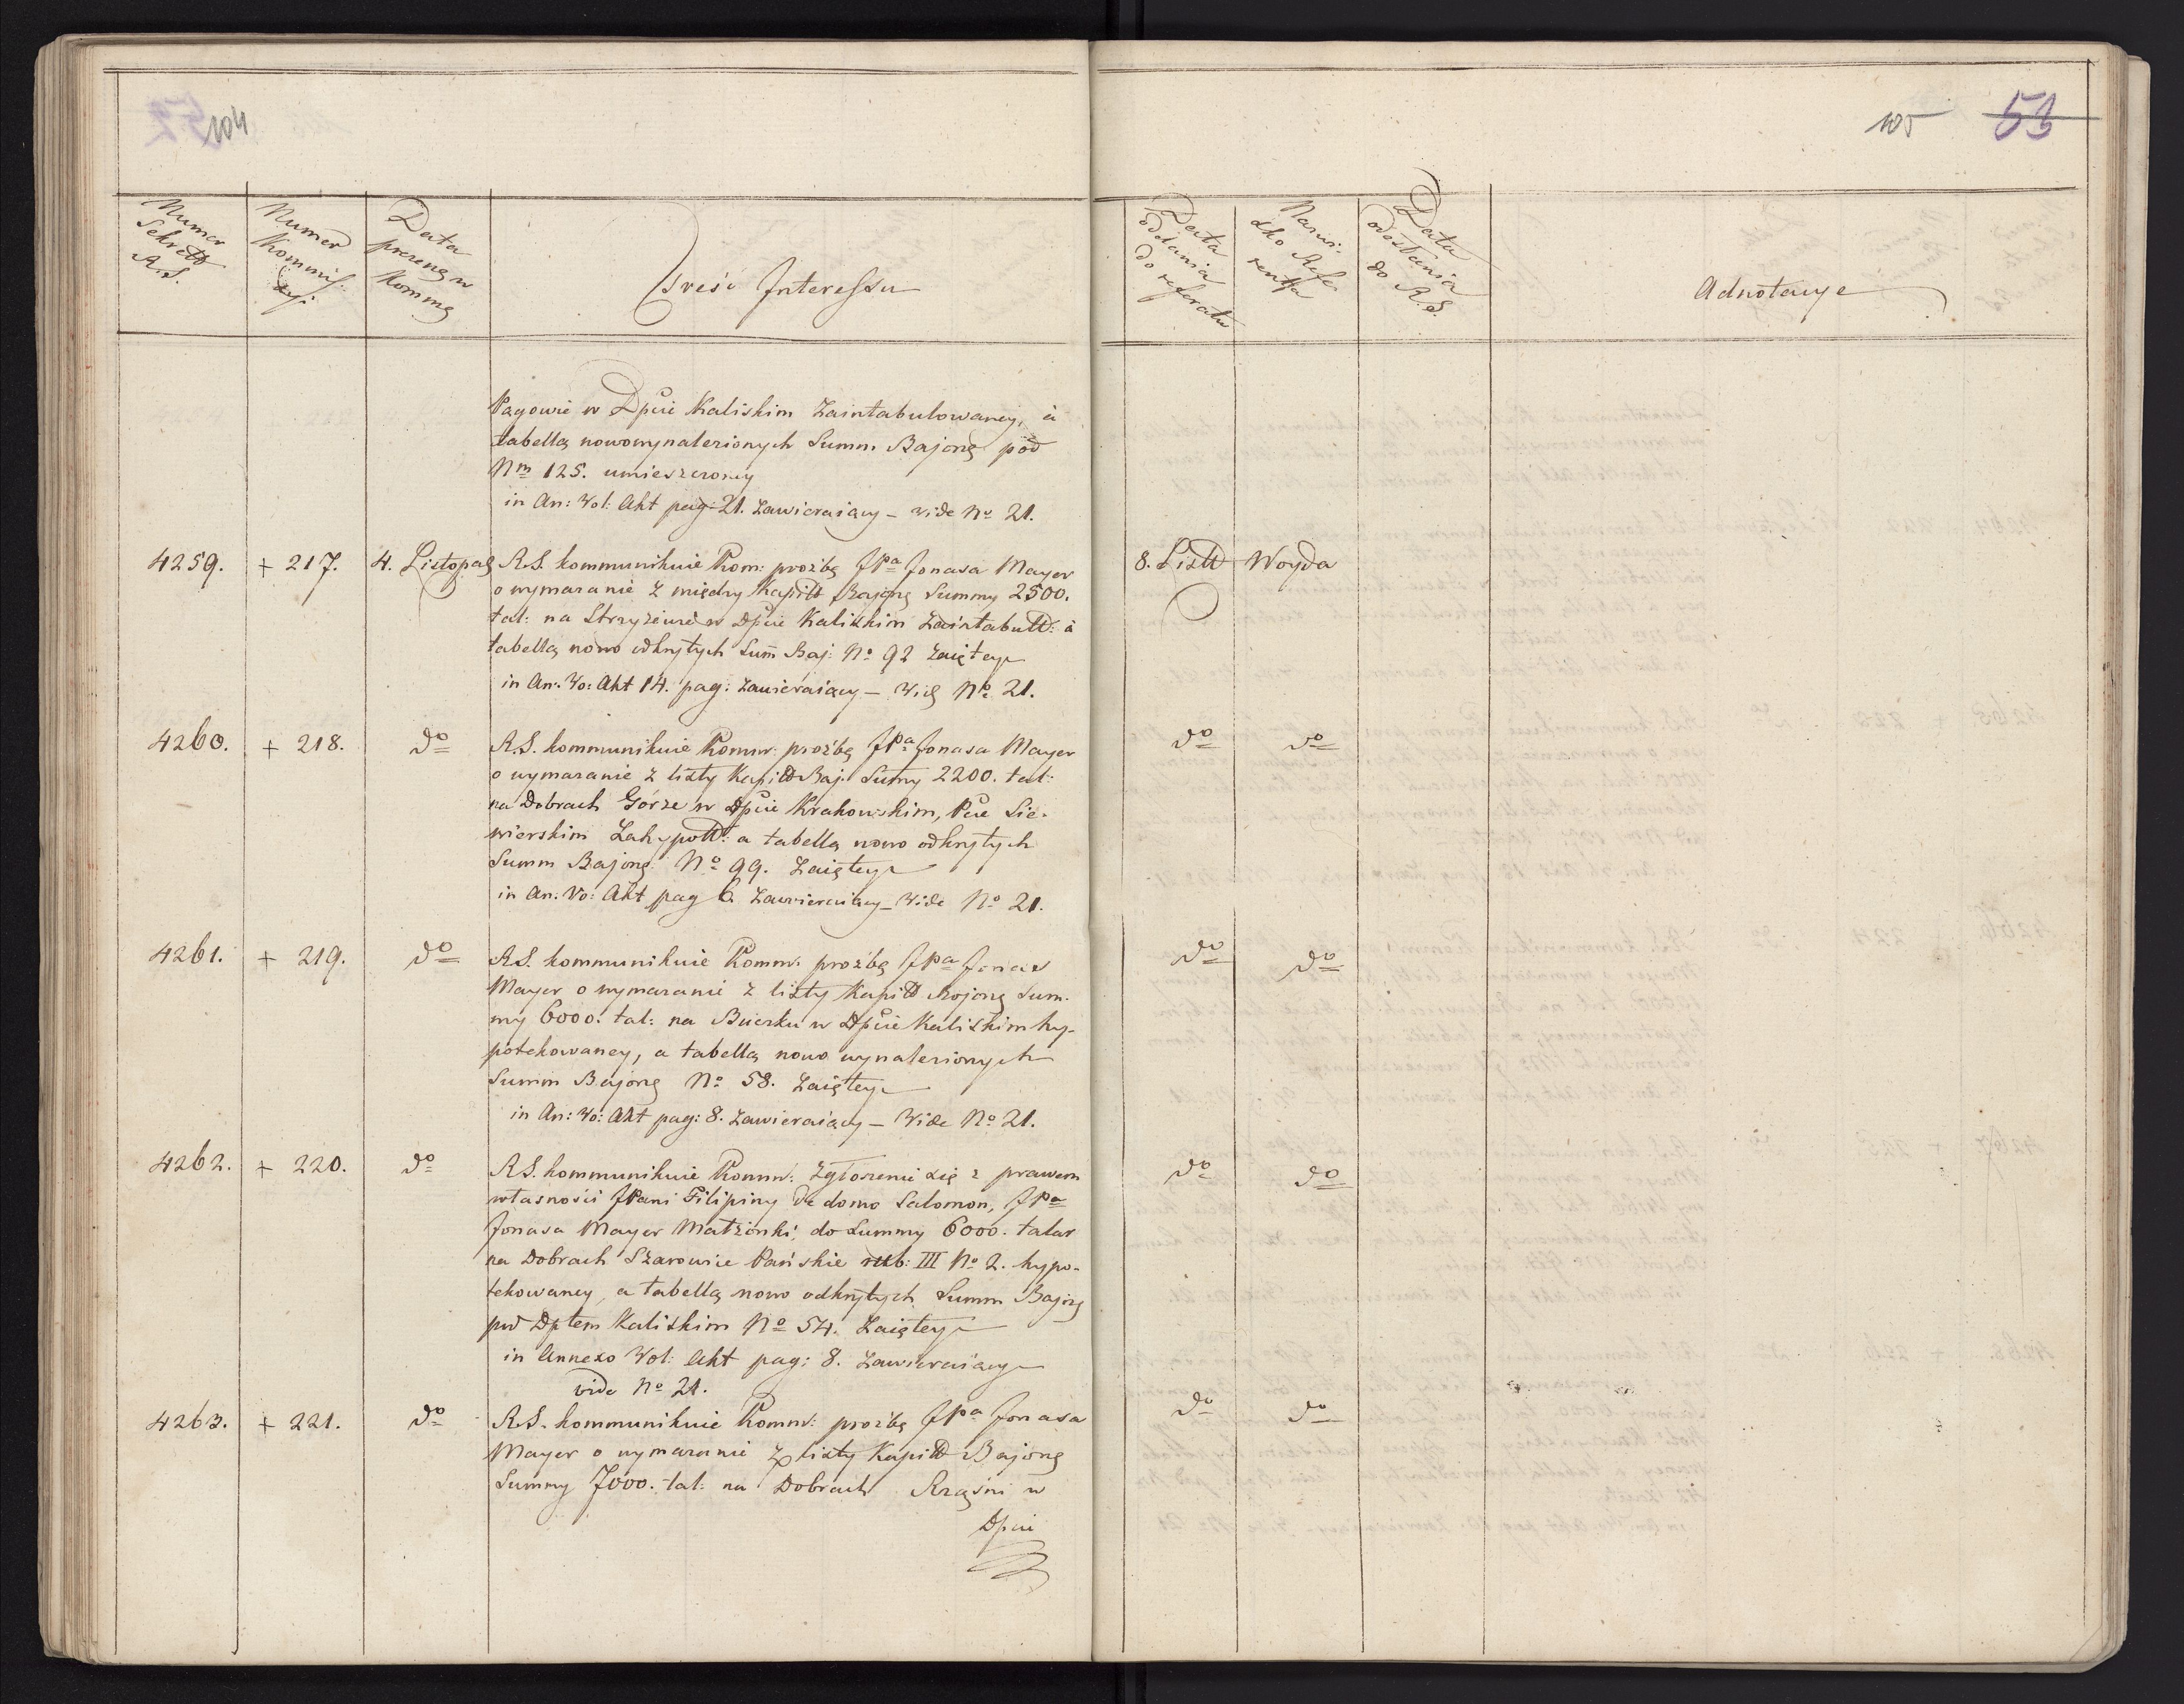 104
Numer Sekrett R.S.
Numer Kommissyi
Data prezenq w Kommq
Treść Interessu
Pągowie w Dpcie Kaliskim Zaintabulowaney, a
tabellą nowowynalezionych Summ Bajonq pod
Nm 125. umieszczoney
in An: Vol: Akt pag: 21. Zawieraiący – vide No 21.
4259. + 217. 4. Listopad R.S. kommunikuie Kom: prożbę JPa Jonasa Mayer
o wymazanie z między Kapitt Bajonq Summy 2500.
tal: na Stryżewie w Dpcie Kaliskim Zaintabutt: a
tabellą nowo odkrytych Sum̅ Baj: No 92 Zaiętey
in An: Vo: Akt 14. pag: Zawieraiący – Vid No 21.
4260. + 218. do R.S. kommunikuie Komm: prożbę JPa Jonasa Mayer
o wymazanie z listy Kapitt Baj: Sumy 2200. tal:
na Dobrach Górze w Dpcie Krakowskim, Pcie Sie-
wierskim Zahypott: a tabellą nowo odkrytych
Summ Bajonq: No 99. Zaiętey
in An: Vo: Akt pag 6. Zawieraiący – Vide No 21.
4261. + 219. do R.S. kommunikuie Komm: prożbę JPa Jonas
Mayer o wymazanie z listy Kapitt Bojonq Sum-
my 6000. tal: na Buczku w Dpcie Kaliskim hy-
potekowaney, a tabellą nowo wynalezionych
Summ Bajonq No 58. Zaiętey
in An: Vo: Akt pag: 8. Zawieraiący – Vide No 21.
4262. + 220. do R.S. kommunikuie Komm: Zgłoszenie się z prawem
własności JPani Filipiny de domo Salomon, JPa
Jonasa Mayer Małżonki, do Summy 6000. talar
na Dobrach Szarowice Pańskie rub: III No 2. hypo-
tekowaney, a tabellą nowo odkrytych Summ Bajonq
pod Dptem Kaliskim No 54. Zaiętey
in Annexo Vol: Akt pag: 8. Zawieraiący
vide No 21.
4263. + 221. do R.S. kommunikuie Komm: prożbę JPa Jonasa
Mayer o wymazanie z listy Kapitt Bajonq
Summy 7000. tal: na Dobrach Rząśni w
Dpcie
105 53
Data oddania do referatu
Nazwisko Referenta
Data odesłania do R.S.
Adnotacye
8. Listt Woyda
do do
do do
do do
do do